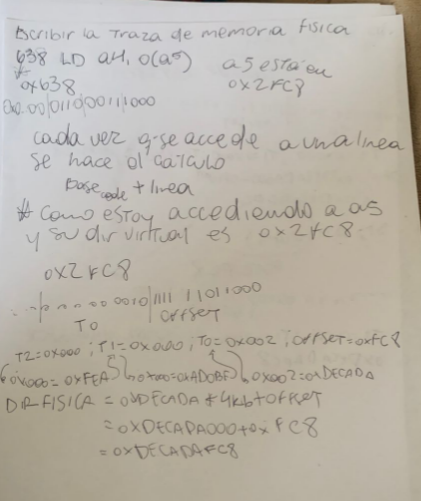 Escribir la traza de memoria fisica
638 LD a4, 0(a5) a5 esta en
0x638 0x2FC8
0x0..00|0110|00111000
cada vez q se accede a una linea
se hace el calculo
Base code + linea
# Como estoy accediendo a a5
y su dir virtual es 0x2FC8
0x2FC8
0010|1111 11011000
T0 OFFSET
T2=0x000 ; T1=0x000 ; T0=0x002 ; OFFSET=0xFC8
0x000=0xFEA 0x000=0xAD0BE 0x002=0xDECADA
DIR FISICA = 0xDECADA * 4kb + OFFSET
= 0xDECADA000+0xFC8
= 0xDECADAFC8